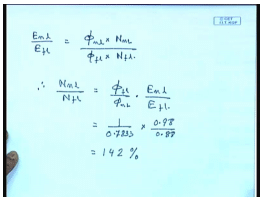 E_nl / E_fl = φ_nl × N_nl / φ_fl × N_fl.
∴ N_nl / N_fl = φ_fl / φ_nl · E_nl / E_fl.
= 1 / 0.7833 × 0.98 / 0.88
= 142 %